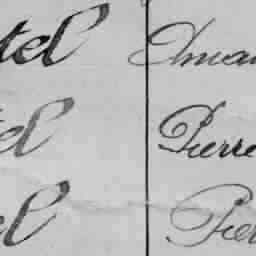 tel Aman
el Pierre
el Pier